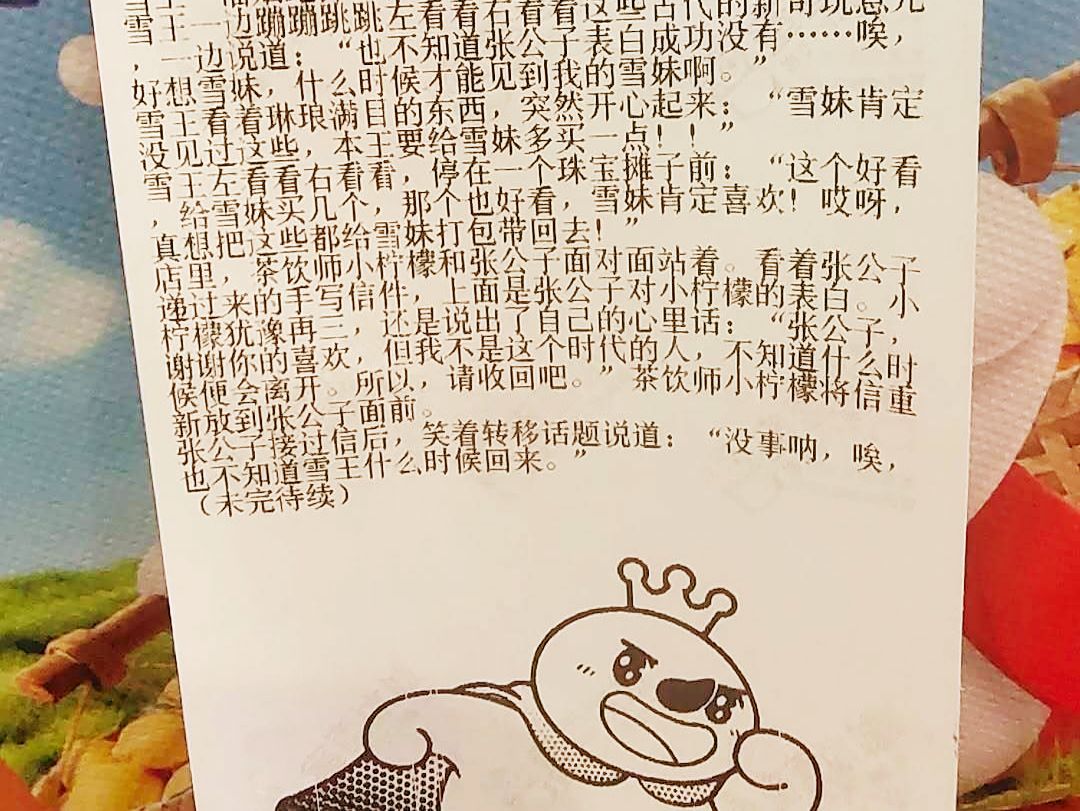 雪王一边蹦蹦跳跳左看看右看看这些古代的新奇玩意儿
，一边说道：“也不知道张公子表白成功没有……唉，
好想雪妹，什么时候才能见到我的雪妹啊。”
雪王看着琳琅满目的东西，突然开心起来：“雪妹肯定
没见过这些，本王要给雪妹多买一点！！”
雪王左看看右看看，停在一个珠宝摊子前：“这个好看
，给雪妹买几个，那个也好看，雪妹肯定喜欢！哎呀，
真想把这些都给雪妹打包带回去！”
店里，茶饮师小柠檬和张公子面对面站着。看着张公子
递过来的手写信件，上面是张公子对小柠檬的表白。小
柠檬犹豫再三，还是说出了自己的心里话：“张公子，
谢谢你的喜欢，但我不是这个时代的人，不知道什么时
候便会离开。所以，请收回吧。”茶饮师小柠檬将信重
新放到张公子面前。
张公子接过信后，笑着转移话题说道：“没事呐，唉，
也不知道雪王什么时候回来。”
（未完待续）